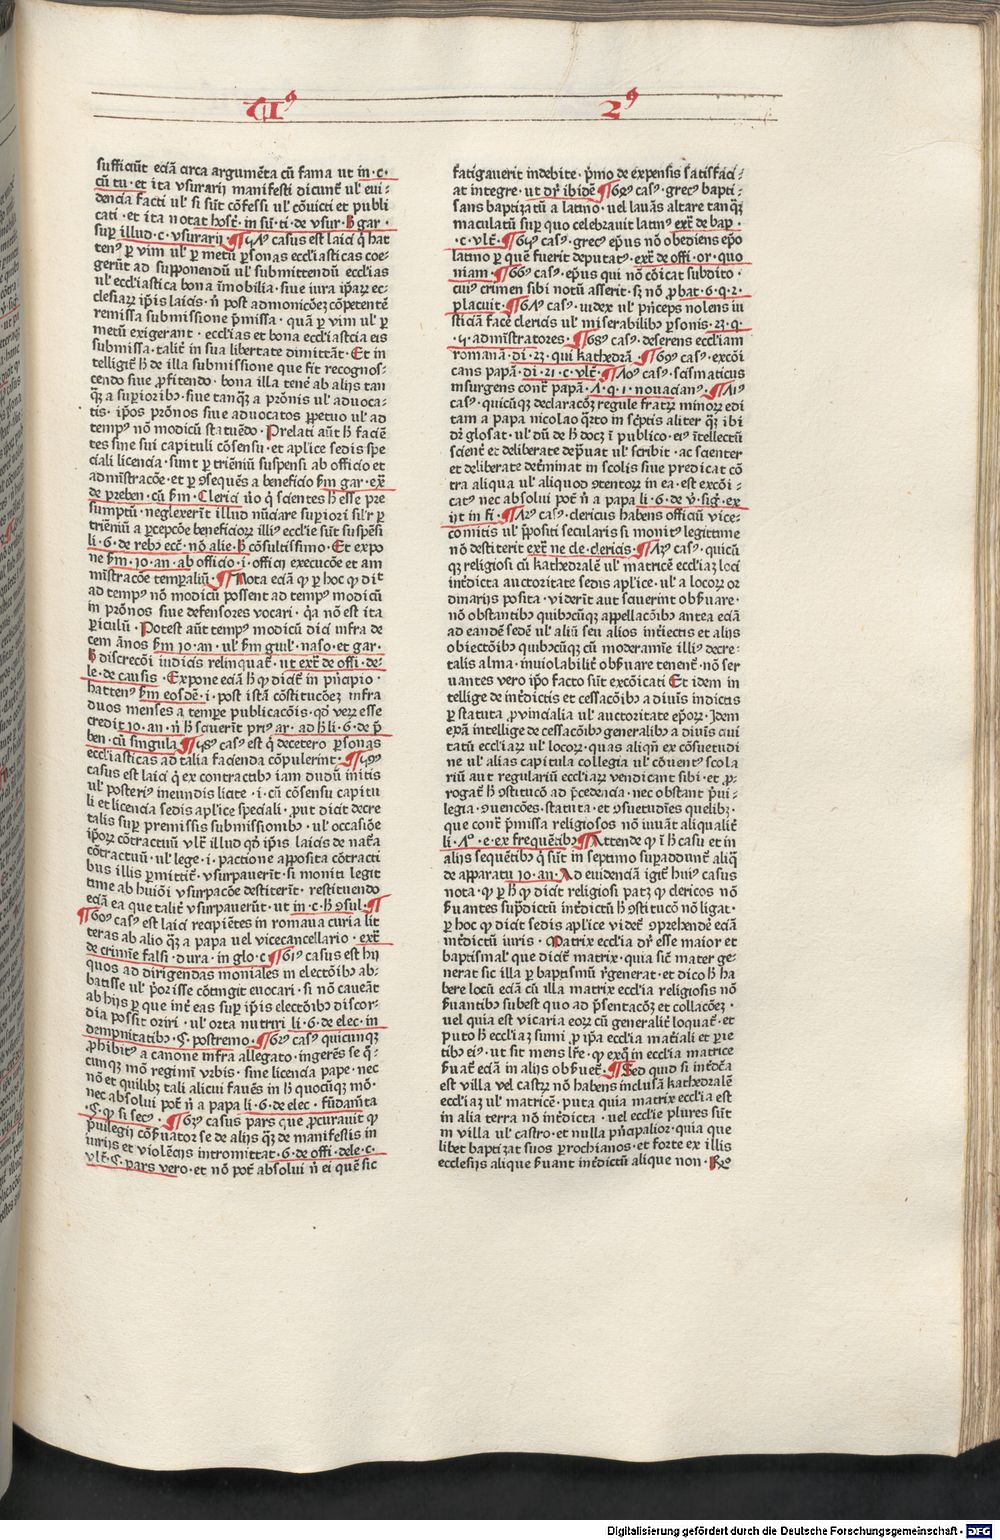 VI⁹ 2⁹
sufficiūt eciā circa argumēta cū fama ut in·c·
cū tu·et ita vsurarij manifesti dicunt̄ ul' eui/
dencia facti ul' si sūt cōfessi ul' cōuicti et publi
cati·et ita notat host̄·in sūt·ti·de vsur·h̄ gar·
sup̱ illud·c·vsurarij ¶ 57⁹ casus est laici q̇ hāt
ten⁹ ꝑ vim ul' ꝑ metū ꝑsonas eccl'iasticas coe⸗
gerūt ad supponendū ul' submittendū eccl'ias
ul' eccl'iastica bona īmobilia·siue iura ip̄aꝝ ec⸗
clesiaꝝ ip̄is laicis·n̄ post admonicōeʒ cōpetentē
remissa submissione p̄missa·quā ꝑ vim ul' ꝑ
metū exigerant·eccl'ias et bona eccl'iastcia eis
submissa·talit̄ in sua libertate dimittāt·Et in
telligit̄ h̄ de illa submissione que fit recognos⸗
cendo siue ꝓfitendo·bona illa tenē ab alijs tan
qʒ̄ a suꝑioribꝫ·siue tanqʒ̄ a pr̄onis ul' aduoca⸗
tis·ip̄os pr̄onos siue aduocatos ꝑpetuo ul' ad
temp⁹ nō modicū statuēdo·Prelati aūt h̄ faciē
tes sine sui capituli cōsensu·et apl'ice sedis spe
ciali licencia·sunt ꝑ triēniū suspensi ab officio et
admīstracōe·et ꝑ ꝯsequēs a beneficio s̄m gar·ex̄
de preben·cū s̄m·Clerici v̇o q̇ scientes h̄ esse pre
sumptū·neglexerīt illud nūciare suꝑiori sil'r ꝑ
triēniū a ꝑcepcōe beneficioꝝ illi⁹ eccl'ie sūt suspēsi
li·6·de rebꝫ ecc̄·nō alie·h̄ cōsultissimo·Et expo
ne s̄m·10·an·ab officio·i·officij execucōe et am
mīstracōe temꝑaliū·¶ Nota eciā ꝙ ꝑ hoc ꝙ dīt
ad temp⁹ nō modicū possent ad temp⁹ modicū
in pr̄onos siue defensores vocari·q̄a nō est ita
ꝑiculū·Potest aūt temp⁹ modicū dici infra de
cem ānos s̄m 10·an·ul' s̄m guil'·naso·et gar·
h̄ discrecōi iudicis relinquat̄·ut ex̄t de offi·de⸗
le·de causis·Expone eciā h̄ ꝙ dicit̄ in pn̄cipio·
hatten⁹ s̄m eosdē·i·post istā cōstitucōeʒ infra
duos menses a temꝑe publicacōis·qd' veꝝ esse
credit 10·an·n̄ h̄ sciuerīt pri⁹ ar·ad h̄ li·6·de p̄
ben·cū singula ¶ 58⁹ cas⁹ est q̇ decetero ꝑsonas
eccl'iasticas ad talia facienda cōpulerint·¶ 59⁹
casus est laici q̇ ex contractibꝫ iam dudū initis
ul' posteri⁹ ineundis licite·i·cū cōsensu capitu
li et licencia sedis apl'ice speciali·ꝓut dicit decre
talis sup̱ premissis submissionibꝫ·ul' occasiōe
ip̄oꝝ cōtractuū vl't̄ illud qd' ip̄is laicis de nat̄a
cōtractuū·ul' lege·i·pactione apposita cōtracti
bus illis ꝑmittit̄·vsurpauerīt·si moniti legit
time ab hui⁹mōi vsurpacōe destiterīt·restituendo
eciā ea que talit̄ vsurpauerūt·ut in·c·h̄ ꝯsul·¶
¶ 60⁹ cas⁹ est laici recipiētes in romana curia lit
teras ab alio qʒ̄ a papa uel vicecancellario·ex̄t
de crimīe falsi·dura·in glo·c ¶ 61⁹ casus est hij
quos ad dirigendas moniales in electōibꝫ ab⸗
batisse ul' p̄orisse cōtingit euocari·si nō caueāt
ab hijs ꝑ que int̄ eas sup̱ ip̄is electōibꝫ discor⸗
dia possit oriri·ul' orta nutriri li·6·de elec·in
dempnitatibꝫ·§·postremo·¶ 62⁹ cas⁹ quicunqꝫ
ꝓhibit⁹ a canone infra allegato·ingerēs se q̇⸗
cunqꝫ mō regimī vrbis·sine licencia pape·nec
nō et quilibꝫ tali alicui fauēs in h̄ quocūqꝫ mō·
nec absolui pot̄ n̄ a papa li·6·de elec·fūdam̄ta
·§·ꝙ si sec⁹·¶ 63⁹ casus pars que ꝓcurauit ꝙ
p̄uilegij cōs̄uator se de alijs qʒ̄ de manifestis in
iurijs et violēcijs intromittat·6·de offi·dele·c·
vl't̄·§·pars vero·et nō pot̄ absolui n̄ ei quē sic
fatigauerit indebite·p̄mo de expensis satisfaci/
at integre·ut dr̄ ibidē ¶ 64⁹ cas⁹·grec⁹ bapti/
sans baptizatū a latino·uel lauās altare tanqʒ̄
maculatū sup̱ quo celebrauit latin⁹ ex̄t de bap·
·c·vl't̄·¶ 65⁹ cas⁹·grec⁹ ep̄us nō obediens ep̄o
latino ꝑ quē fuerit deputat⁹·ex̄t de offi·or·quo
niam·¶ 66⁹ cas⁹·ep̄us qui nō cōicat subdito·
cui⁹ crimen sibi notū asserit·sꝫ nō ꝓbat·6·q·2·
placuit·¶ 67⁹ cas⁹·iudex ul' pn̄ceps nolens iu
sticiā face clericis ul' miserabilibꝫ ꝑsonis·23·q·
·5·admīstratores·¶ 68⁹ cas⁹·deserens eccl'iam
romanā·di·23·qui kathedrā·¶ 69⁹ cas⁹·excōi
cans papā·di·21·c·vl't̄·¶ 70⁹ cas⁹·scismaticus
insurgens cont̄ papā·7·q·1·nouacian⁹·¶ 71⁹
cas⁹·quicūqꝫ declaracōʒ regule fratꝝ minoꝝ edi
tam a papa nicolao q̄rto in sc̄ptis aliter qʒ̄ ibi
dr̄ glosat·ul' dū de h̄ docʒ ī publico·ei⁹ ītellectū
scient̄ et deliberate dep̄uat ul' scribit·ac scienter
et deliberate det̄minat in scolis siue predicat cō
tra aliqua ul' aliquod ꝯtentoꝝ in ea·est excōi·
cat⁹ nec absolui pot̄ n̄ a papa li·6·de v̄·siḡ·ex
ijt in fi·¶ 72⁹ cas⁹·clericus habens officiū vice⸗
comitis ul' p̄positi secularis si monit⁹ legittime
nō destiterit ex̄t ne cle·clericis·¶ 73⁹ cas⁹·quicū
qꝫ religiosi cū kathedralē ul' matricē eccl'iaʒ loci
int̄dicta auctoritate sedis apl'ice·ul' a locoꝝ or
dinarijs posita·viderīt aut sciuerint obs̄uare·
nō obstantibꝫ quibꝫcūqꝫ appellacōibꝫ antea eciā
ad eandē sedē ul' aliū seu alios int̄iectis et alijs
obiectōibꝫ quibꝫcūqꝫ cū moderamīe illi⁹ decre⸗
talis alma·inuiolabilit̄ obs̄uare tenent̄·nō ser
uantes vero ip̄o facto sūt excōicati Et idem in
tellige de int̄dictis et cessacōibꝫ a diuīs indictis
ꝑ statuta ꝓvincialia ul' auctoritate ep̄oꝝ·Idem
eciā intellige de cessacōibꝫ generalibꝫ a diuīs ciui
tatū eccl'iaꝝ ul' locoꝝ·quas aliqn̄ ex cōsuetudi
ne ul' alias capitula collegia ul' cōuent⁹ scola
riū aut regulariū eccl'iaꝝ vendicant sibi·et ꝓ⸗
rogat̄ h̄ ꝯstitucō ad p̄cedencia·nec obstant p̄ui⸗
legia·ꝯuencōes·statuta·et ꝯsuetudīes quelibꝫ·
que cont̄ p̄missa religiosos nō iuuāt aliqualit̄
li·7°·e·ex frequētibꝫ ¶ Attende ꝙ ī h̄ casu et in
alijs sequētibꝫ q̇ sūt in septimo suꝑaddunt̄ aliq̄
de apparatu 10·an·Ad euidenciā igit̄ hui⁹ casus
nota·ꝙ ꝑ h̄ ꝙ dicit religiosi patʒ ꝙ clericos nō
s̄uantes sup̄dictū int̄dictū h̄ ꝯstitucō nō ligat·
ꝑ hoc ꝙ dicit sedis apl'ice videt̄ ꝯprehendē eciā
int̄dictū iuris·Matrix eccl'ia dr̄ esse maior et
baptismal' que dicit̄ matrix·quia sic̄ mater ge⸗
nerat sic illa ꝑ baptismū r̄generat·et dico h̄ ha
bere locū eciā cū illa matrix eccl'ia religiosis nō
s̄uantibꝫ subest quo ad p̄sentacōʒ et collacōeʒ·
uel quia est vicaria eoꝝ cū generalit̄ loquat̄·et
puto h̄ eccl'iaʒ sumi ꝓ ip̄a eccl'ia mat̄iali et ꝑie
tibꝫ ei⁹·ut sit mens lr̄e·ꝙ exq̄ in eccl'ia matrice
s̄uat̄ eciā in alijs obs̄uet̄·¶ Sed quid si int̄dc̄a
est villa vel castꝝ nō habens inclusā kathedralē
eccl'iaʒ ul' matricē·puta quia matrix eccl'ia est
in alia terra nō int̄dicta·uel eccl'ie plures sūt
in villa ul' castro·et nulla pn̄cipalior·quia que
libet baptizat suos ꝑrochianos·et forte ex illis
ecclesijs alique s̄uant int̄dictū alique non·Rō
Digitalisierung gefördert durch die Deutsche Forschungsgemeinschaft · DFG